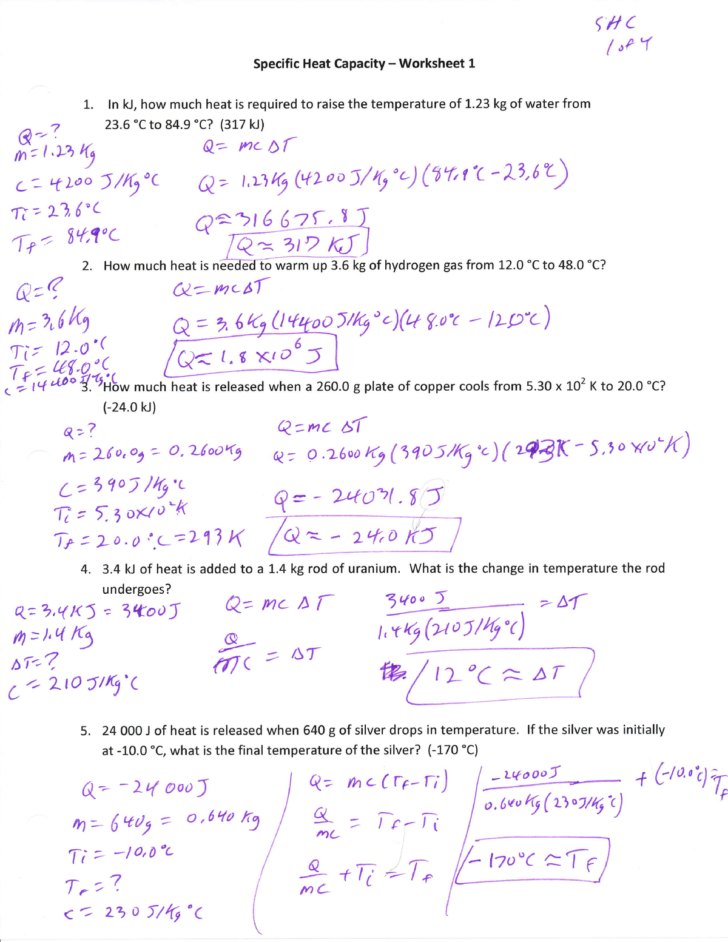 SHC
1 of 4
Specific Heat Capacity – Worksheet 1
1. In kJ, how much heat is required to raise the temperature of 1.23 kg of water from
23.6 °C to 84.9 °C? (317 kJ)
Q=?
m=1.23 Kg
C = 4200 J/Kg°C
Ti = 23.6°C
Tf = 84.9°C
Q = mcΔT
Q = 1.23Kg(4200J/Kg°C)(84.9°C-23.6°C)
Q=316675.8J
Q≈317 KJ
2. How much heat is needed to warm up 3.6 kg of hydrogen gas from 12.0 °C to 48.0 °C?
Q=?
m=3.6Kg
Ti = 12.0°C
Tf = 48.0°C
c = 14400J/Kg°C
Q=mcΔT
Q = 3.6Kg(14400J/Kg°C)(48.0°C - 12.0°C)
Q≈ 1.8 x10⁶ J
3. How much heat is released when a 260.0 g plate of copper cools from 5.30 x 10² K to 20.0 °C?
(-24.0 kJ)
Q=?
m=260.0g = 0.2600Kg
C=390J/Kg°C
Ti = 5.30x10²K
Tf = 20.0°C=293K
Q=mc ΔT
Q= 0.2600Kg(390J/Kg°C)(293K-5.30x10²K)
Q=-24031.8J
Q≈ -24.0 KJ
4. 3.4 kJ of heat is added to a 1.4 kg rod of uranium. What is the change in temperature the rod
undergoes?
Q=3.4KJ = 3400J
m=1.4 Kg
ΔT=?
C = 210J/Kg°C
Q=mc ΔT
Q
mc = ΔT
3400 J = ΔT
1.4Kg(210J/Kg°C)
12°C ≈ ΔT
5. 24 000 J of heat is released when 640 g of silver drops in temperature. If the silver was initially
at -10.0 °C, what is the final temperature of the silver? (-170 °C)
Q= -24 000J
m= 640g = 0.640 Kg
Ti = -10.0°C
Tf = ?
c = 230 J/Kg°C
Q= mc(Tf-Ti)
Q
mc = Tf-Ti
Q
mc +Ti = Tf
-24000J + (-10.0°C)=Tf
0.640Kg(230J/Kg°C)
-170°C ≈Tf